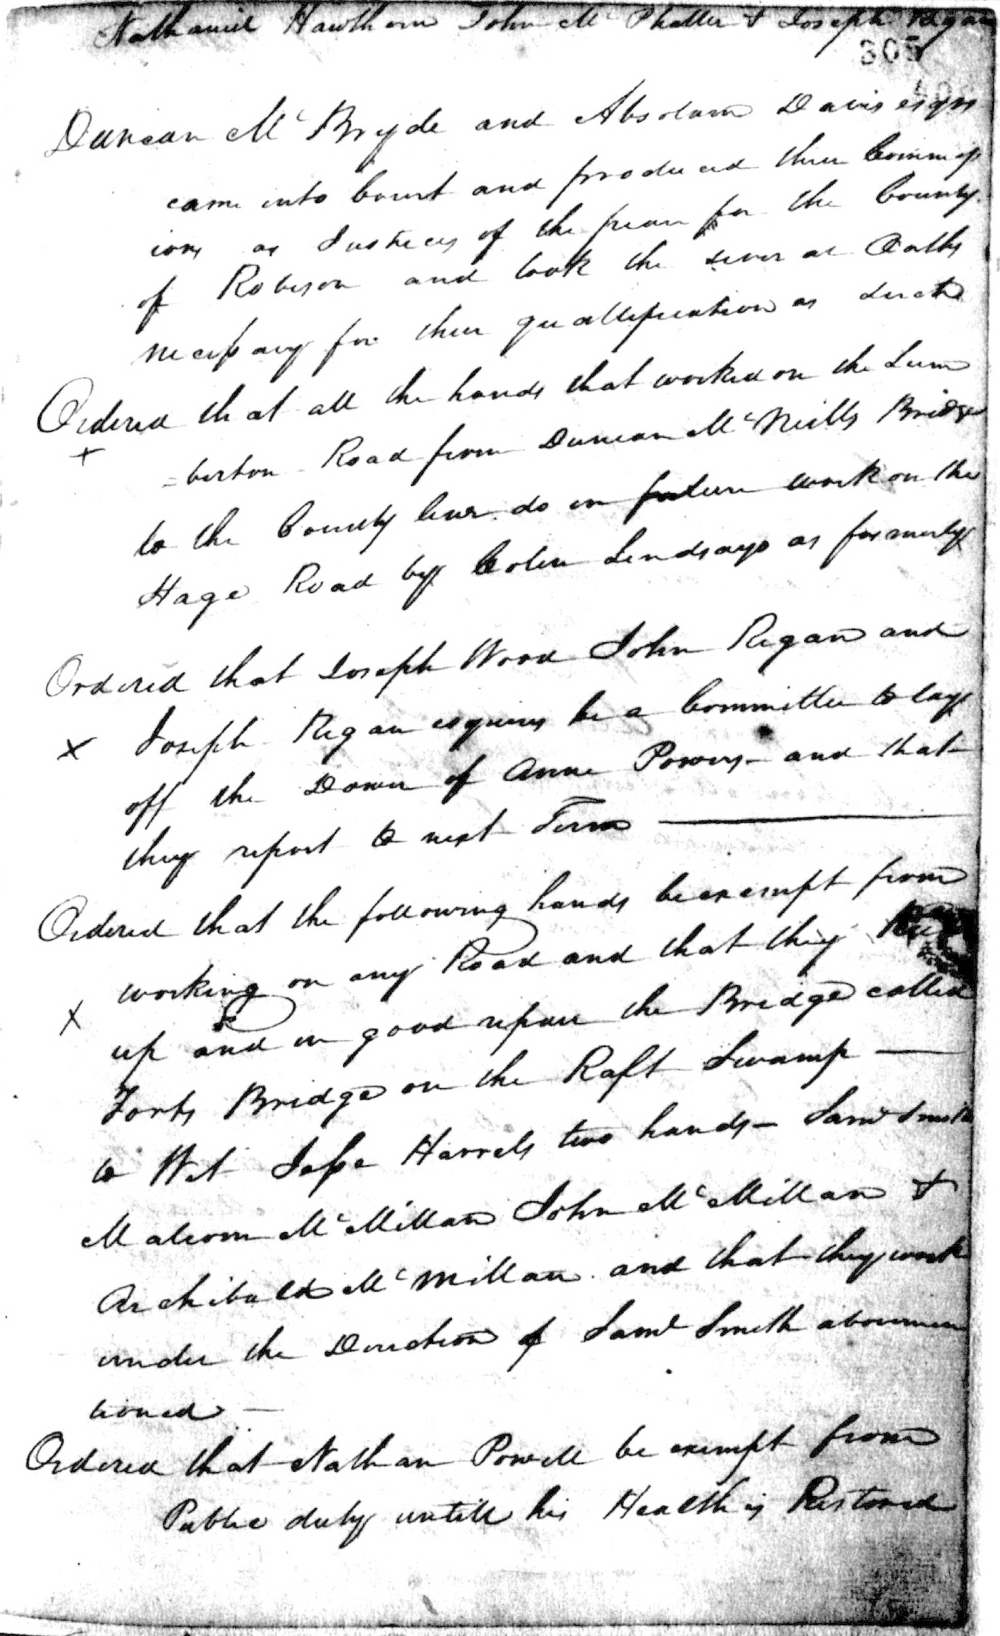 Nathaniel Hawthorn John McPhatter & Joseph Regan
305
Duncan McBryde and Absolam Davis esqrs
came into Court and produced their Commiss
ions as Justices of the peace for the County
of Robeson and took the several Oaths
necessary for their quallification as directed
Ordered that all the hands that worked on the Lum
=berton Road from Duncan McNeills Bridge
to the County line do in future work on the
Stage Road by Colin Lindsays as formerly
Ordered that Joseph Wood John Regan and
x Joseph Regan esquires be a Committee to lay
off the Dower of Anne Powers and that
they report to next Term
Ordered that the following hands be exempt from
working on any Road and that they
x up and in good repair the Bridge called
Forts Bridge on the Raft Swamp
to Wit Jesse Harrels two hands Saml Smith
Malcom McMillan John McMillan &
Archibald McMillan and that they work
under the Direction of Saml Smith abovemen
tioned
Ordered that Nathan Powell be exempt from
Public duty untill his Health is Restored